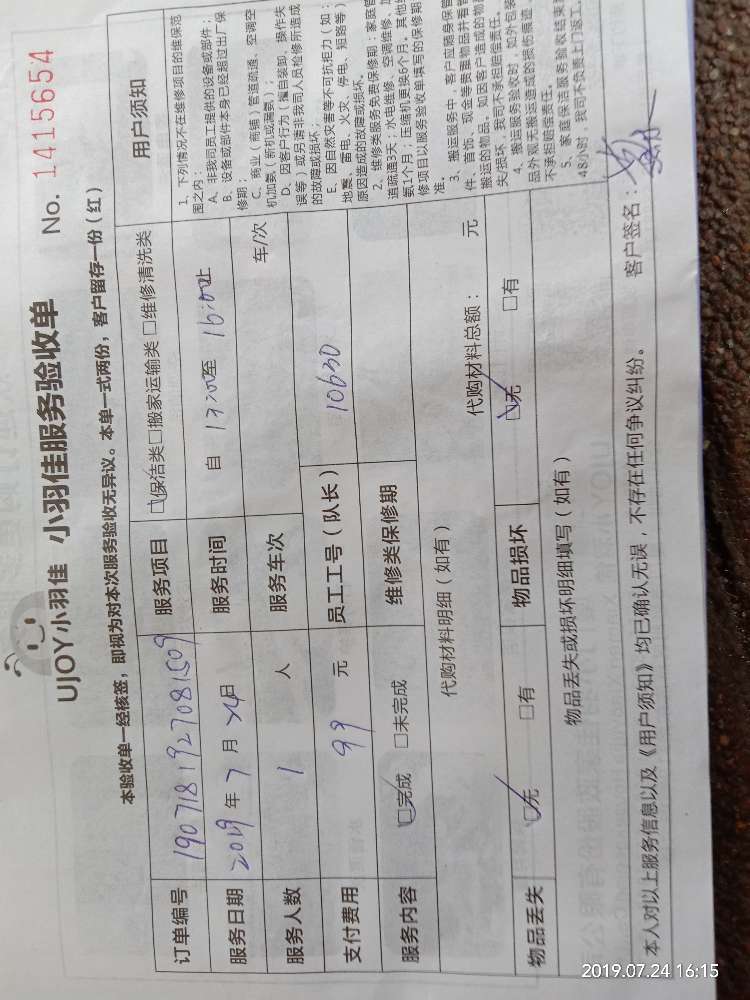 UJOY小羽佳 小羽佳服务验收单 No. 1415654
本验收单一经核签，即视为对本次服务验收无异议。本单一式两份，客户留存一份（红）
订单编号 1907181927081509 服务项目 □保洁类□搬家运输类 □维修清洗类
服务日期 2019年7月24日 服务时间 自 13:00至 16:00止
服务人数 1 人 服务车次 车/次
支付费用 99 元 员工工号（队长） 10630
服务内容 □完成 □未完成 维修类保修期
代购材料明细（如有） 代购材料总额： 元
物品丢失 □无 □有 物品损坏 □无 □有
物品丢失或损坏明细填写（如有）
本人对以上服务信息以及《用户须知》均已确认无误，不存在任何争议纠纷。 客户签名：
用户须知
1、下列情况不在维修项目的维保范
围之内：
A、非我司员工提供的设备或部件；
B、设备或部件本身已经超过出厂保
修期；
C、商业（商铺）管道疏通、空调空
机加氨（新机或漏氨）；
D、因客户行为（擅自装卸、操作失
误等）或另请非我司人员检修所造成
的故障或损坏；
E、因自然灾害等不可抗拒力（如：
地震、雷电、火灾、停电、短路等）
原因造成的故障或损坏。
2、维修类服务免费保修期：家庭管
道疏通3天；水电维修、空调维修、加
氨1个月；压缩机更换6个月。其他
修项目以服务验收单填写的保修期
准。
3、搬运服务中，客户应随身保管
件、首饰、现金等贵重物品并看管
搬运的物品。如因客户造成的物品
失/损坏，我司不承担赔偿责任。
4、搬运服务验收时，如外包装
品外观无搬运造成的损伤痕迹
不承担赔偿责任。
5、家庭保洁服务验收结束
48小时，我司不负责上门返工。
2019.07.24 16:15